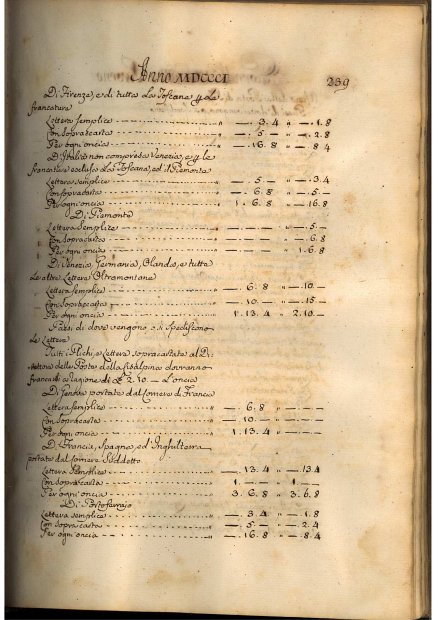 Anno MDCCCI
239
Di Firenze, e di tutta La Toscana p La
francatura
Lettera semplice — . 3. 4 " — . 1. 8
Con Sopracarta — . 5 — " — . 2. 8
Per ogni oncia — . 16. 8 " — 8 4
D'Italia non compresa Venezia, e p le
francature escluso La Toscana, ed il Piemonte
Lettera semplice — . 5 — " — . 3. 4
Con sopracarta — . 6. 8 " — . 5 —
Per ogni oncia 1. 6. 8 " — . 16. 8
Di Piemonte
Lettera Semplice — . — . — " — . 5 —
Con sopracarta — . — . — " — . 6. 8
Per ogni oncia — . — . — " 1. 6. 8
Di Venezia, Germania, Olanda, e tutte
Le altre Lettere Oltramontane
Lettera semplice — . 6. 8 " — . 10. —
Con Sopracarta — . 10. — " — . 15 —
Per ogni oncia 1. 13. 4 " 2. 10. —
Paesi di dove vengono o si Spediscono
Le Lettere
Tutti i Plichi, e Lettere sopracartate al Di-
rettore delle Poste della Cisalpina dovranno
francarsi a ragione di £ 2. 10. — L'oncia
Di Genova portate dal Corriere di Francia
Lettera semplice — . 6. 8 " — . — . —
Con sopracarta — . 10 — " — . — . —
Per ogni oncia 1. 13. 4 " — . — . —
Di Francia, Spagna, ed Inghilterra
portate dal Corriere Suddetto
Lettera Semplice — . 13. 4 " — . 13. 4
Con sopracarta 1. — . — " 1. — . —
Per ogni oncia 3. 6. 8 " 3. 6. 8
Di Portoferrajo
Lettera semplice — . 3. 4 " — . 1. 8
Con sopracarta — . 5 — " — . 2. 4
Per ogni oncia — — . 16. 8 " — . 8. 4